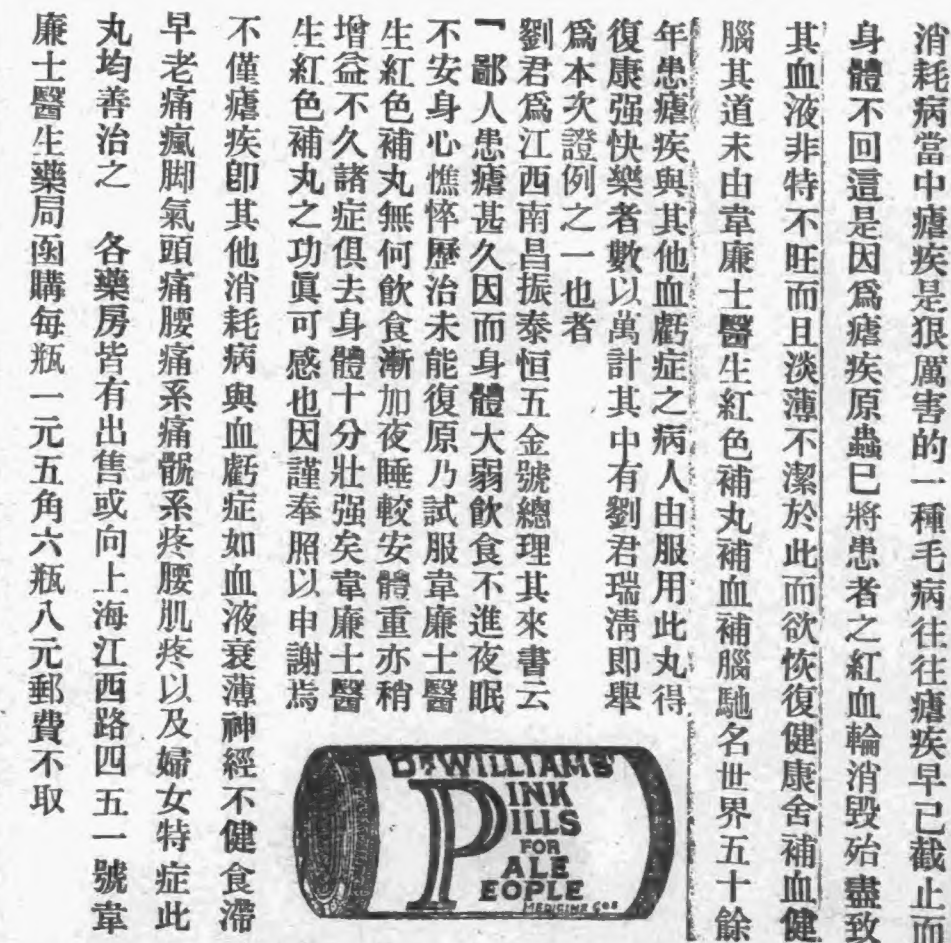 消耗病當中瘧疾是狠厲害的一種毛病往往瘧疾早已截止而
身體不回這是因爲瘧疾原蟲已將患者之紅血輪消毀殆盡致
其血液非特不旺而且淡薄不潔於此而欲恢復健康舍補血健
腦其道末由韋廉士醫生紅色補丸補血補腦馳名世界五十餘
年患瘧疾與其他血虧症之病人由服用此丸得
復康强快樂者數以萬計其中有劉君瑞淸即舉
爲本次證例之一也者
劉君爲江西南昌振泰恒五金號總理其來書云
「鄙人患瘧甚久因而身體大弱飲食不進夜眠
不安身心憔悴歷治未能復原乃試服韋廉士醫
生紅色補丸無何飲食漸加夜睡較安體重亦稍
增益不久諸症俱去身體十分壯强矣韋廉士醫
生紅色補丸之功眞可感也因謹奉照以申謝焉
不僅瘧疾卽其他消耗病與血虧症如血液衰薄神經不健食滯
早老痛瘋脚氣頭痛腰痛系痛髋系疼腰肌疼以及婦女特症此
丸均善治之　各藥房皆有出售或向上海江西路四五一號韋
廉士醫生藥局函購每瓶一元五角六瓶八元郵費不取
DR WILLIAMS'
PINK
PILLS
FOR
PALE
PEOPLE
MEDICINE COS